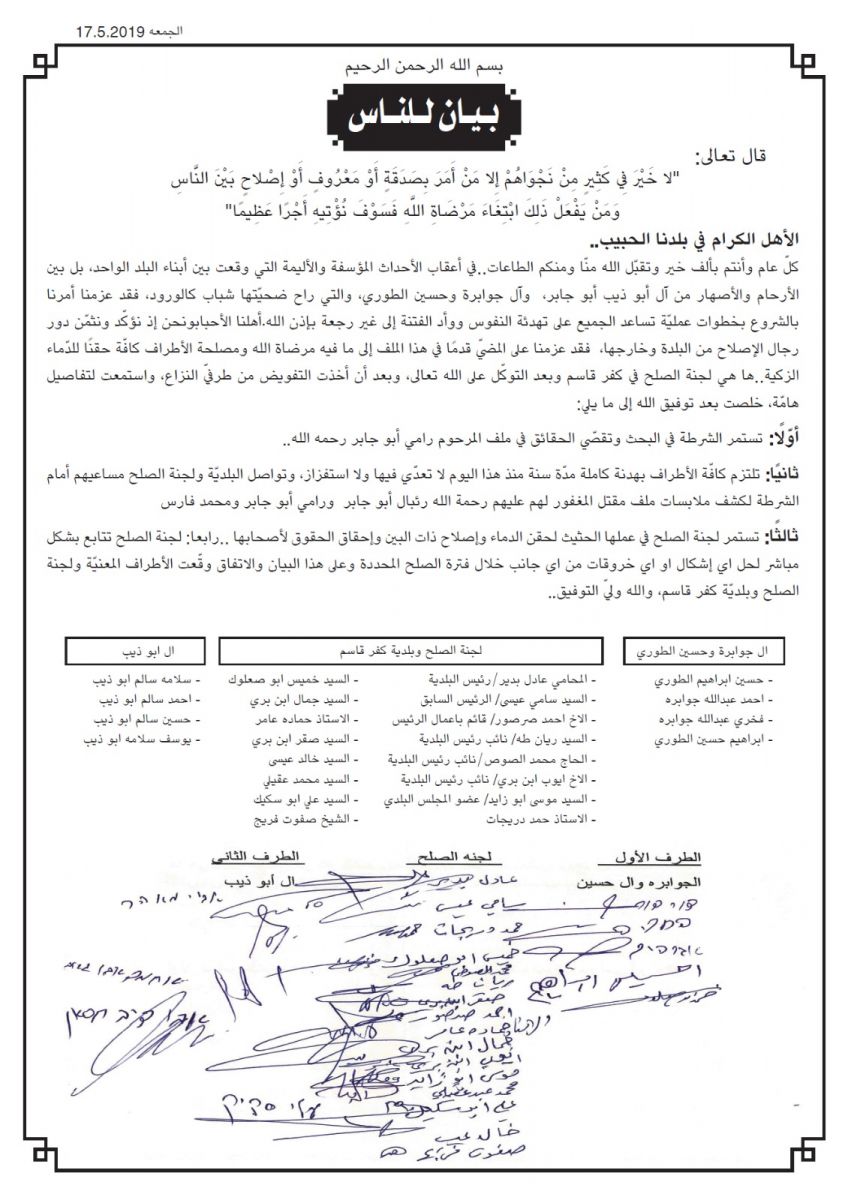 الجمعه 17.5.2019
بسم الله الرحمن الرحيم
بيان للناس
قال تعالى:
"لا خَيْرَ فِي كَثِيرٍ مِنْ نَجْوَاهُمْ إِلا مَنْ أَمَرَ بِصَدَقَةٍ أَوْ مَعْرُوفٍ أَوْ إِصْلاحٍ بَيْنَ النَّاسِ
وَمَنْ يَفْعَلْ ذَلِكَ ابْتِغَاءَ مَرْضَاةِ اللَّهِ فَسَوْفَ نُؤْتِيهِ أَجْرًا عَظِيمًا"
الأهل الكرام في بلدنا الحبيب..
كلّ عام وأنتم بألف خير وتقبّل الله منّا ومنكم الطاعات..في أعقاب الأحداث المؤسفة والأليمة التي وقعت بين أبناء البلد الواحد، بل بين
الأرحام والأصهار من آل أبو ذيب أبو جابر، وآل جوابرة وحسين الطوري، والتي راح ضحيّتها شباب كالورود، فقد عزمنا أمرنا
بالشروع بخطوات عمليّة تساعد الجميع على تهدئة النفوس ووأد الفتنة إلى غير رجعة بإذن الله.أهلنا الأحبابونحن إذ نؤكّد ونثمّن دور
رجال الإصلاح من البلدة وخارجها، فقد عزمنا على المضيّ قدمًا في هذا الملف إلى ما فيه مرضاة الله ومصلحة الأطراف كافّة حقنًا للدّماء
الزكية..ها هي لجنة الصلح في كفر قاسم وبعد التوكّل على الله تعالى، وبعد أن أخذت التفويض من طرفيّ النزاع، واستمعت لتفاصيل
هامّة، خلصت بعد توفيق الله إلى ما يلي:
أوّلًا: تستمر الشرطة في البحث وتقصّي الحقائق في ملف المرحوم رامي أبو جابر رحمه الله..
ثانيًا: تلتزم كافّة الأطراف بهدنة كاملة مدّة سنة منذ هذا اليوم لا تعدّي فيها ولا استفزاز، وتواصل البلديّة ولجنة الصلح مساعيهم أمام
الشرطة لكشف ملابسات ملف مقتل المغفور لهم عليهم رحمة الله رئبال أبو جابر ورامي أبو جابر ومحمد فارس
ثالثًا: تستمر لجنة الصلح في عملها الحثيث لحقن الدماء وإصلاح ذات البين وإحقاق الحقوق لأصحابها ..رابعا: لجنة الصلح تتابع بشكل
مباشر لحل اي إشكال او اي خروقات من اي جانب خلال فترة الصلح المحددة وعلى هذا البيان والاتفاق وقّعت الأطراف المعنيّة ولجنة
الصلح وبلديّة كفر قاسم، والله وليّ التوفيق..
ال جوابرة وحسين الطوري
- حسين ابراهيم الطوري
- احمد عبدالله جوابره
- فخري عبدالله جوابره
- ابراهيم حسين الطوري
لجنة الصلح وبلدية كفر قاسم
- المحامي عادل بدير/رئيس البلدية
- السيد سامي عيسى/ الرئيس السابق
- الاخ احمد صرصور/ قائم باعمال الرئيس
- السيد ريان طه/ نائب رئيس البلدية
- الحاج محمد الصوص/نائب رئيس البلدية
- الاخ ايوب ابن بري/ نائب رئيس البلدية
- السيد موسى ابو زايد/ عضو المجلس البلدي
- الاستاذ حمد دريجات
- السيد خميس ابو صعلوك
- السيد جمال ابن بري
- الاستاذ حماده عامر
- السيد صقر ابن بري
- السيد خالد عيسى
- السيد محمد عقيلي
- السيد علي ابو سكيك
- الشيخ صفوت فريج
ال ابو ذيب
- سلامه سالم ابو ذيب
- احمد سالم ابو ذيب
- حسين سالم ابو ذيب
- يوسف سلامه ابو ذيب
الطرف الأول
لجنه الصلح
الطرف الثاني
الجوابره وال حسين
ال أبو ذيب
عادل بدير
سامي عيسى
حمد دريجات
خميس ابو صعلوك
محمد الصوص
ريان طه
صقر ابن بري
احمد صرصور
حماده عامر
جمال ابن بري
موسى ابو زايد
علي ابو سكيك
خالد عيسى
صفوت فريج